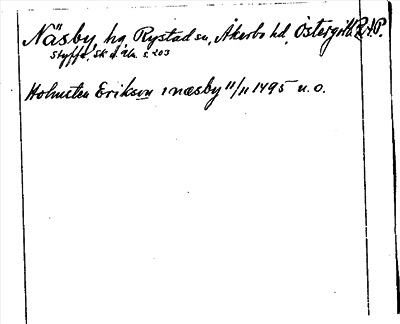 Näsby, hg Rystad sn, Åkerbo hd, Östergötl. RAP.
Styffe, Sk u. Ut. s. 203
Holmsten Erikson i næsby 11/11 1495 u. o.